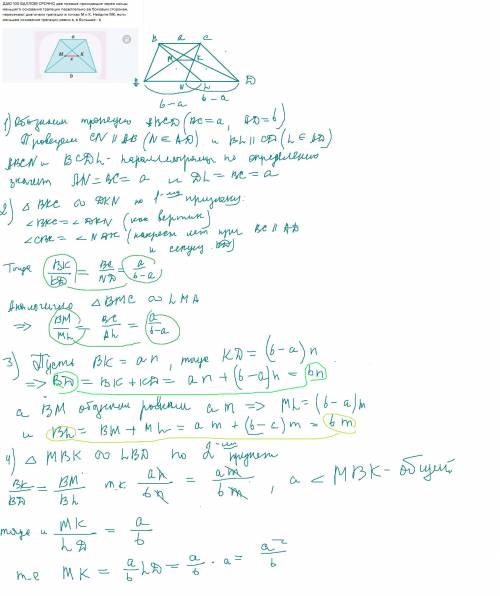 ДАЮ 100 БАЛЛОВ! СРОЧНО Две прямые проходящие через концы
меньшего основания трапеции параллельно её боковым сторонам,
пересекают диагонали трапеции в точках М и К. Найдите МК, если
меньшее основание трапеции равно а, а большее - b.
a
M K
b
B a C
M K
A N L D
b-a b-a
1) Обозначим трапецию ABCD (BC=a, AD=b)
Проведем CN || AB (N∈AD) и BL || CD (L∈AD)
ABCN и BCDL - параллелограммы по определению
значит AN=BC=a и DL=BC=a
2) △BKC ∞ DKN по 1-му признаку:
∠BKC=∠DKN (как вертик)
∠CBK=∠NDK (накрест леж при BC || AD
и секущ. BD)
Тогда BK/KD = BC/ND = a/b-a
Аналогично △BMC ∞ LMA
⇒ BM/ML = BC/AL = a/b-a
3) Пусть BK=an, тогда KD=(b-a)n
⇒ BD=BK+KD=an+(b-a)n=bn
а BM обозначим равным am ⇒ ML=(b-a)m
и BL=BM+ML=am+(b-a)m=bm
4) △MBK ∞ LBD по 2-му признаку
BK/BD = BM/BL т.к an/bn = am/bm, а ∠MBK - общий
тогда и MK/LD = a/b
т.е MK = a/b LD = a/b · a = a²/b